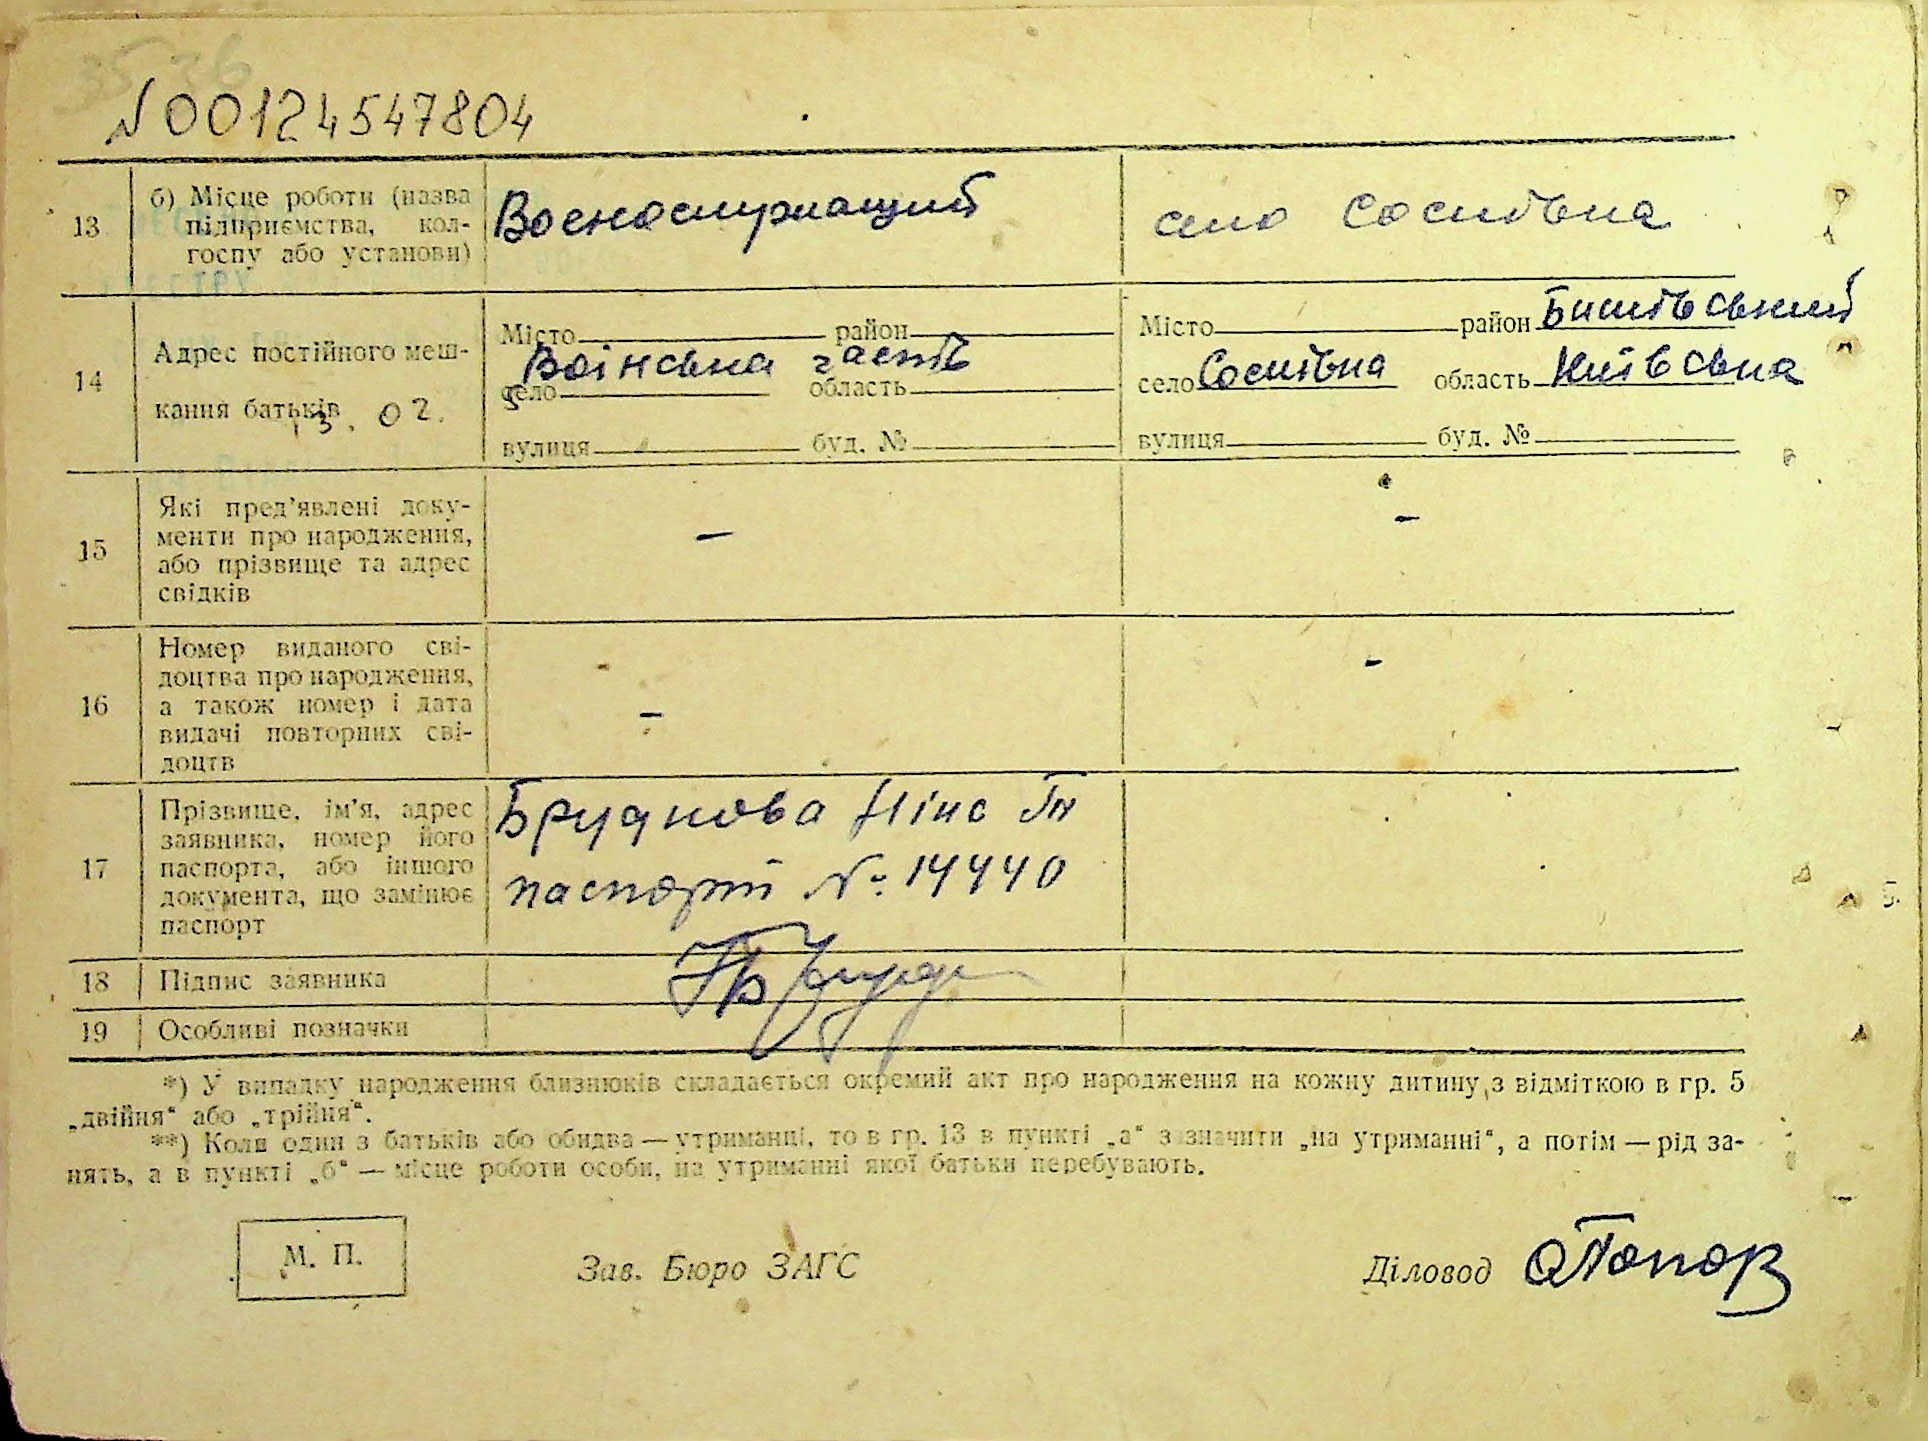 35 36
N 00124547804
13
б) Місце роботи (назва
підприємства, кол-
госпу або установи)
Военослужащий
село Соснівка
14
Адрес постійного меш-
кання батьків
13. 02.
Місто район
Воінська часть
село область
вулиця буд. №
Місто район
село Соснівка область Київська
вулиця буд. №
15
Які пред'явлені доку-
менти про народження,
або прізвище та адрес
свідків
–
–
16
Номер виданого сві-
доцтва про народження,
а також номер і дата
видачі повторних сві-
доцтв
–
–
17
Прізвище, ім'я, адрес
заявника, номер його
паспорта, або іншого
документа, що замінює
паспорт
паспорт №
18
Підпис заявника
19
Особливі позначки
*) У випадку народження близнюків складається окремий акт про народження на кожну дитину з відміткою в гр. 5
„двійня“ або „трійня“.
**) Коли один з батьків або обидва — утриманці, то в гр. 13 в пункті „а“ зазначити „на утриманні“, а потім — рід за-
нять, а в пункті „б“ — місце роботи особи, на утриманні якої батьки перебувають.
М. П.
Зав. Бюро ЗАГС
Діловод